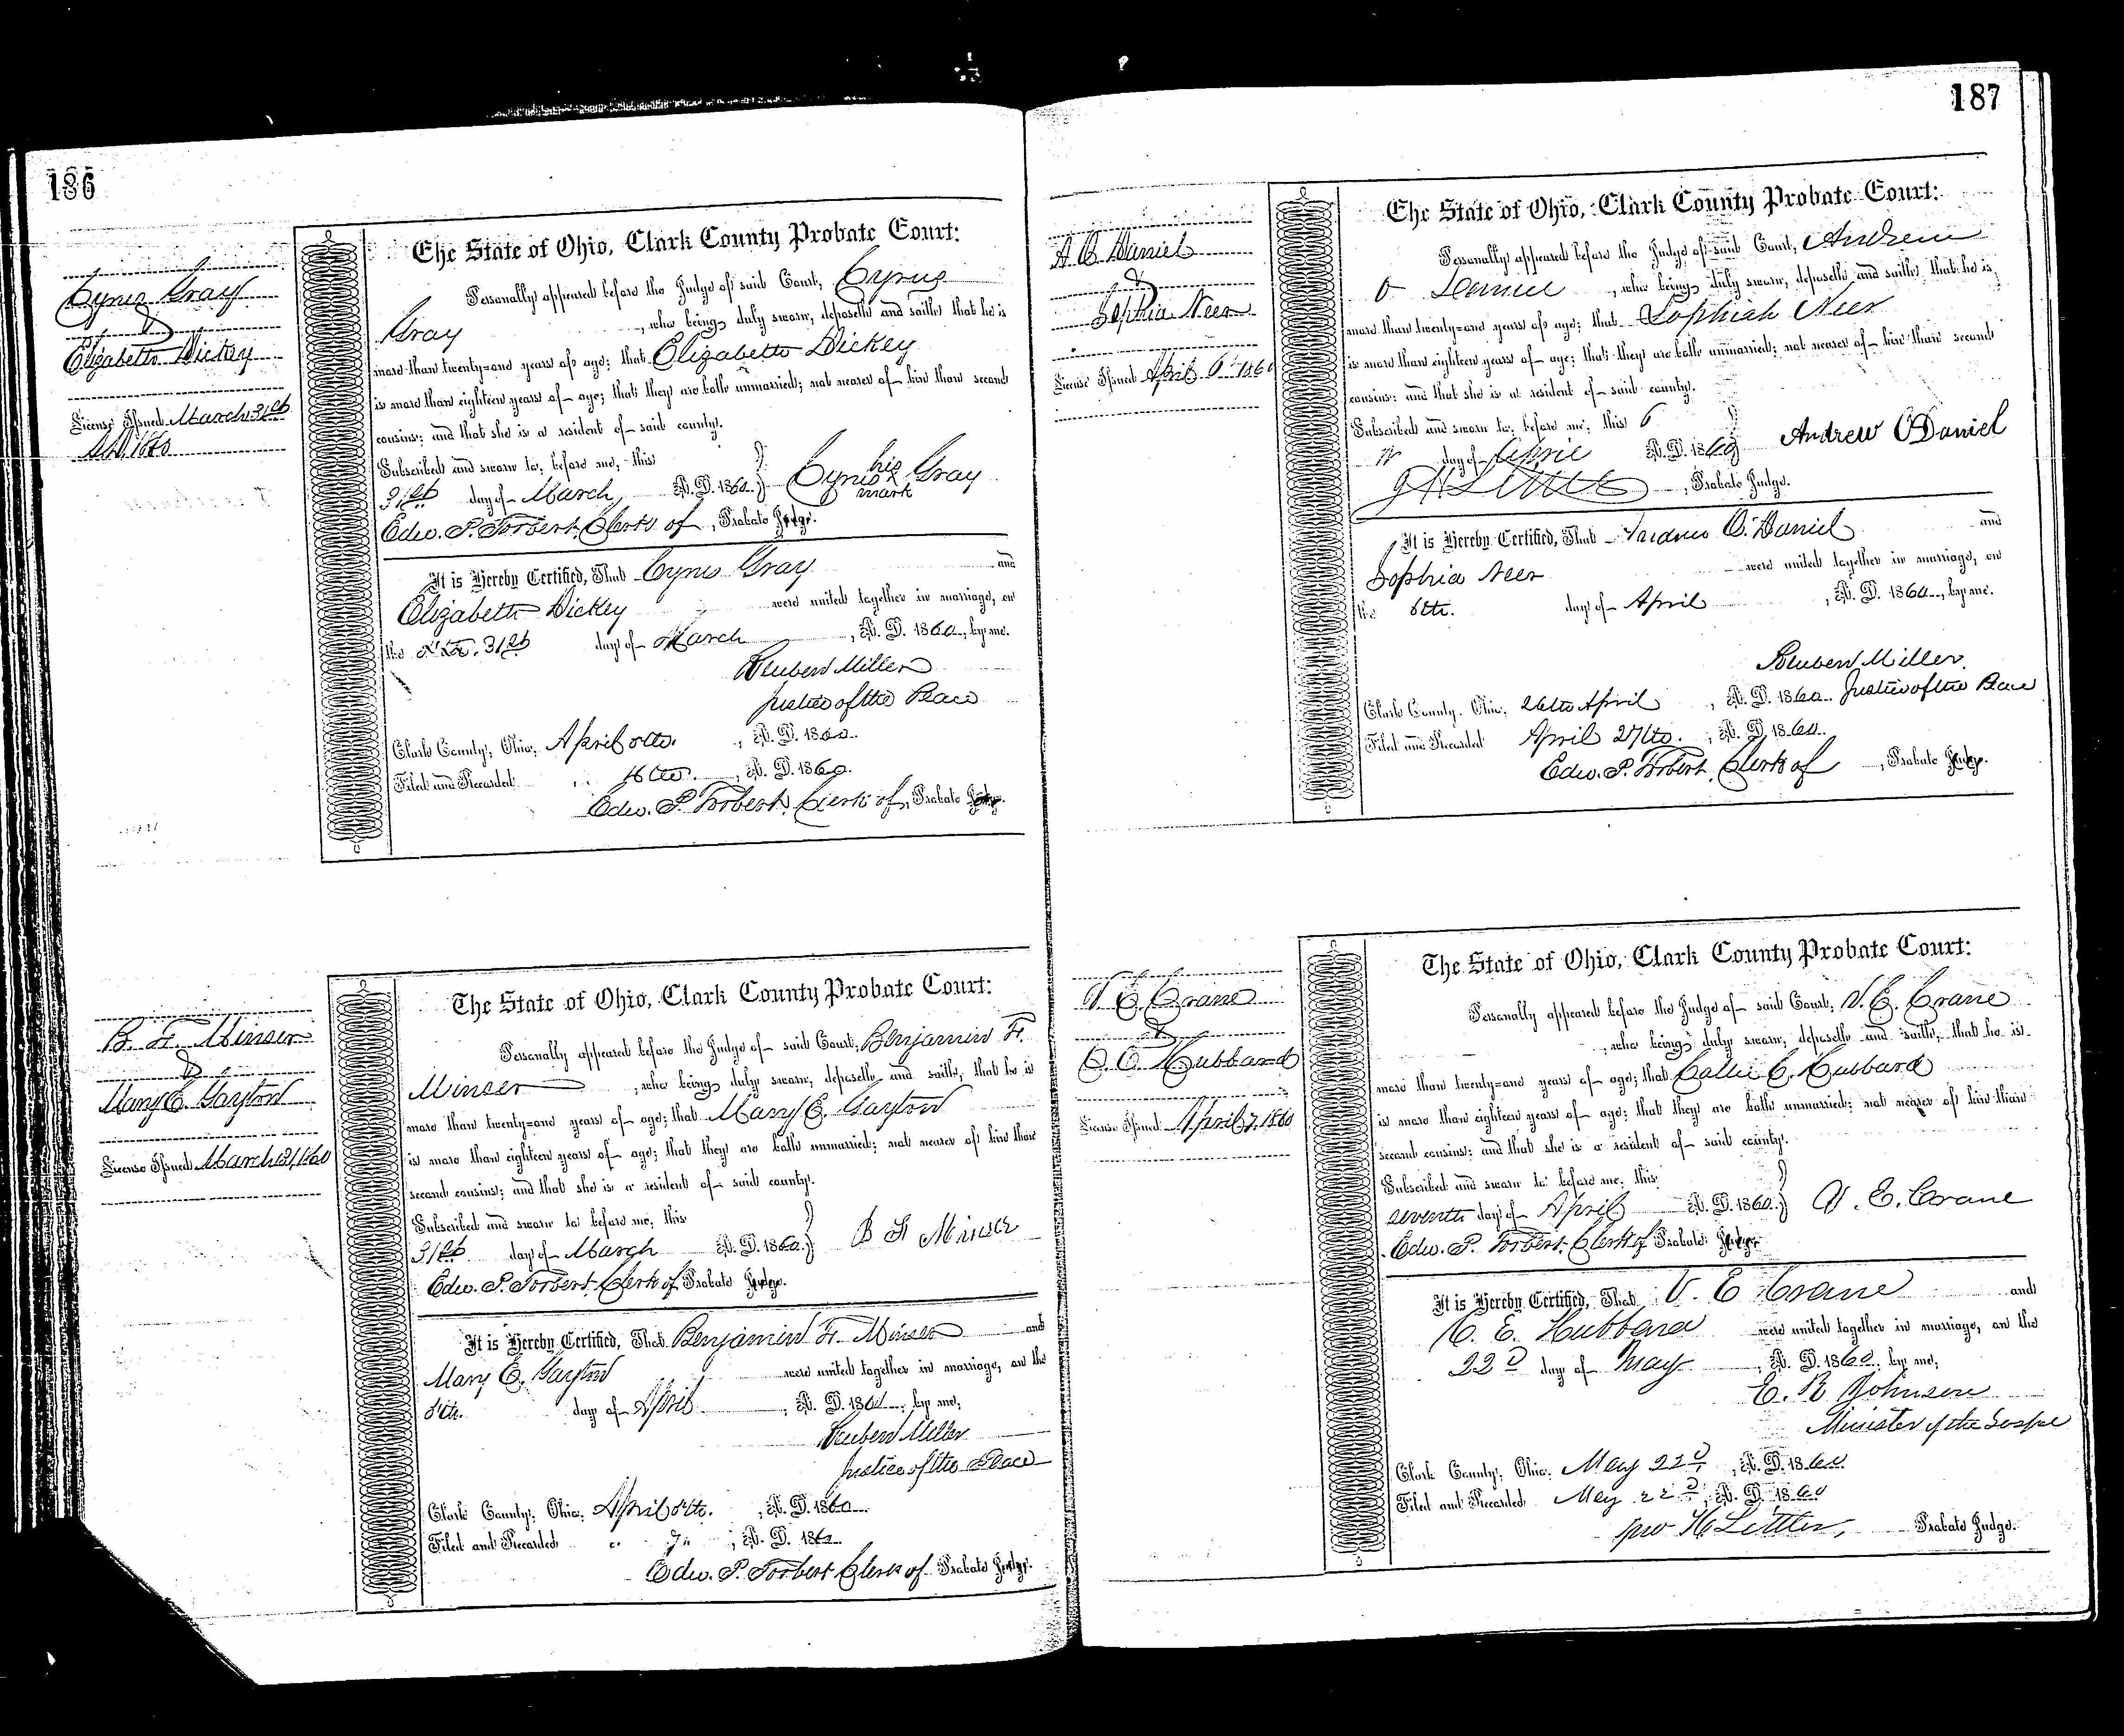 186
Cyrus Gray
&
Elizabeth Dickey
License Issued March 31st
AD. 1860
The State of Ohio, Clark County Probate Court:
Personally appeared before the Judge of said Court, Cyrus
Gray, who being duly sworn, deposeth and saith, that he is
more than twenty=one years of age; that Elizabeth Dickey
is more than eighteen years of age; that they are both unmarried; not nearer of kin than second
cousins; and that she is a resident of said county.
Subscribed and sworn to, before me, this
31st day of March, A. D. 1860. Cyrus his x mark Gray
Edw. P. Torbert, Clerk of, Probate Judge.
It is Hereby Certified, That Cyrus Gray and
Elizabeth Dickey were united together in marriage, on
the 31st day of March, A. D. 1860, by me.
Reuben Miller
Justice of the Peace
Clark County, Ohio, April 5th., A. D. 1860.
Filed and Recorded 16th., A. D. 1860.
Edw. P. Torbert, Clerk of, Probate Judge.
B. F. Minser
&
Mary E. Gayton
License Issued March 31, 1860
The State of Ohio, Clark County Probate Court:
Personally appeared before the Judge of said Court, Benjamin F.
Minser, who being duly sworn, deposeth and saith, that he is
more than twenty=one years of age; that Mary E. Gayton
is more than eighteen years of age; that they are both unmarried; not nearer of kin than
second cousins; and that she is a resident of said county.
Subscribed and sworn to before me, this
31st day of March A. D. 1860. B F Minser
Edw. P. Torbert, Clerk of Probate Judge.
It is Hereby Certified, That Benjamin F. Minser and
Mary E. Gayton were united together in marriage, on the
5th. day of April, A. D. 1860, by me,
Reuben Miller
Justice of the Peace
Clark County, Ohio, April 5th., A. D. 1860.
Filed and Recorded " 7", A. D. 1860.
Edw. P. Torbert Clerk of Probate Judge.
187
A O Daniel
&
Sophia Neer
License Issued April 6th 1860
The State of Ohio, Clark County Probate Court:
Personally appeared before the Judge of said Court, Andrew
O Daniel, who being duly sworn, deposeth and saith, that he is
more than twenty=one years of age; that Sophiah Neer
is more than eighteen years of age; that they are both unmarried; not nearer of kin than second
cousins; and that she is a resident of said county.
Subscribed and sworn to, before me, this 6
th day of April A. D. 1860 Andrew O Daniel
, Probate Judge.
It is Hereby Certified, That Andrew O. Daniel and
Sophia Neer were united together in marriage, on
the 6th. day of April, A. D. 1860, by me.
Reuben Miller.
Clark County, Ohio, 26th April, A. D. 1860. Justice of the Peace
Filed and Recorded April 27th., A. D. 1860.
Edw. P. Torbert, Clerk of, Probate Judge.
V. E. Crane
&
C. E. Hubbard
License Issued April 7, 1860
The State of Ohio, Clark County Probate Court:
Personally appeared before the Judge of said Court, V. E. Crane
, who being duly sworn, deposeth and saith, that he is
more than twenty=one years of age; that Callie E. Hubbard
is more than eighteen years of age; that they are both unmarried; not nearer of kin than
second cousins; and that she is a resident of said county.
Subscribed and sworn to before me, this
seventh day of April A. D. 1860. V. E. Crane
Edw. P. Torbert, Clerk of Probate Judge
It is Hereby Certified, That V. E Crane and
C. E. Hubbard were united together in marriage, on the
22d day of May, A. D. 1860, by me,
E. R Johnson
Minister of the Gospel
Clark County, Ohio, May 22d, A. D. 1860
Filed and Recorded May 22d, A. D. 1860
Probate Judge.